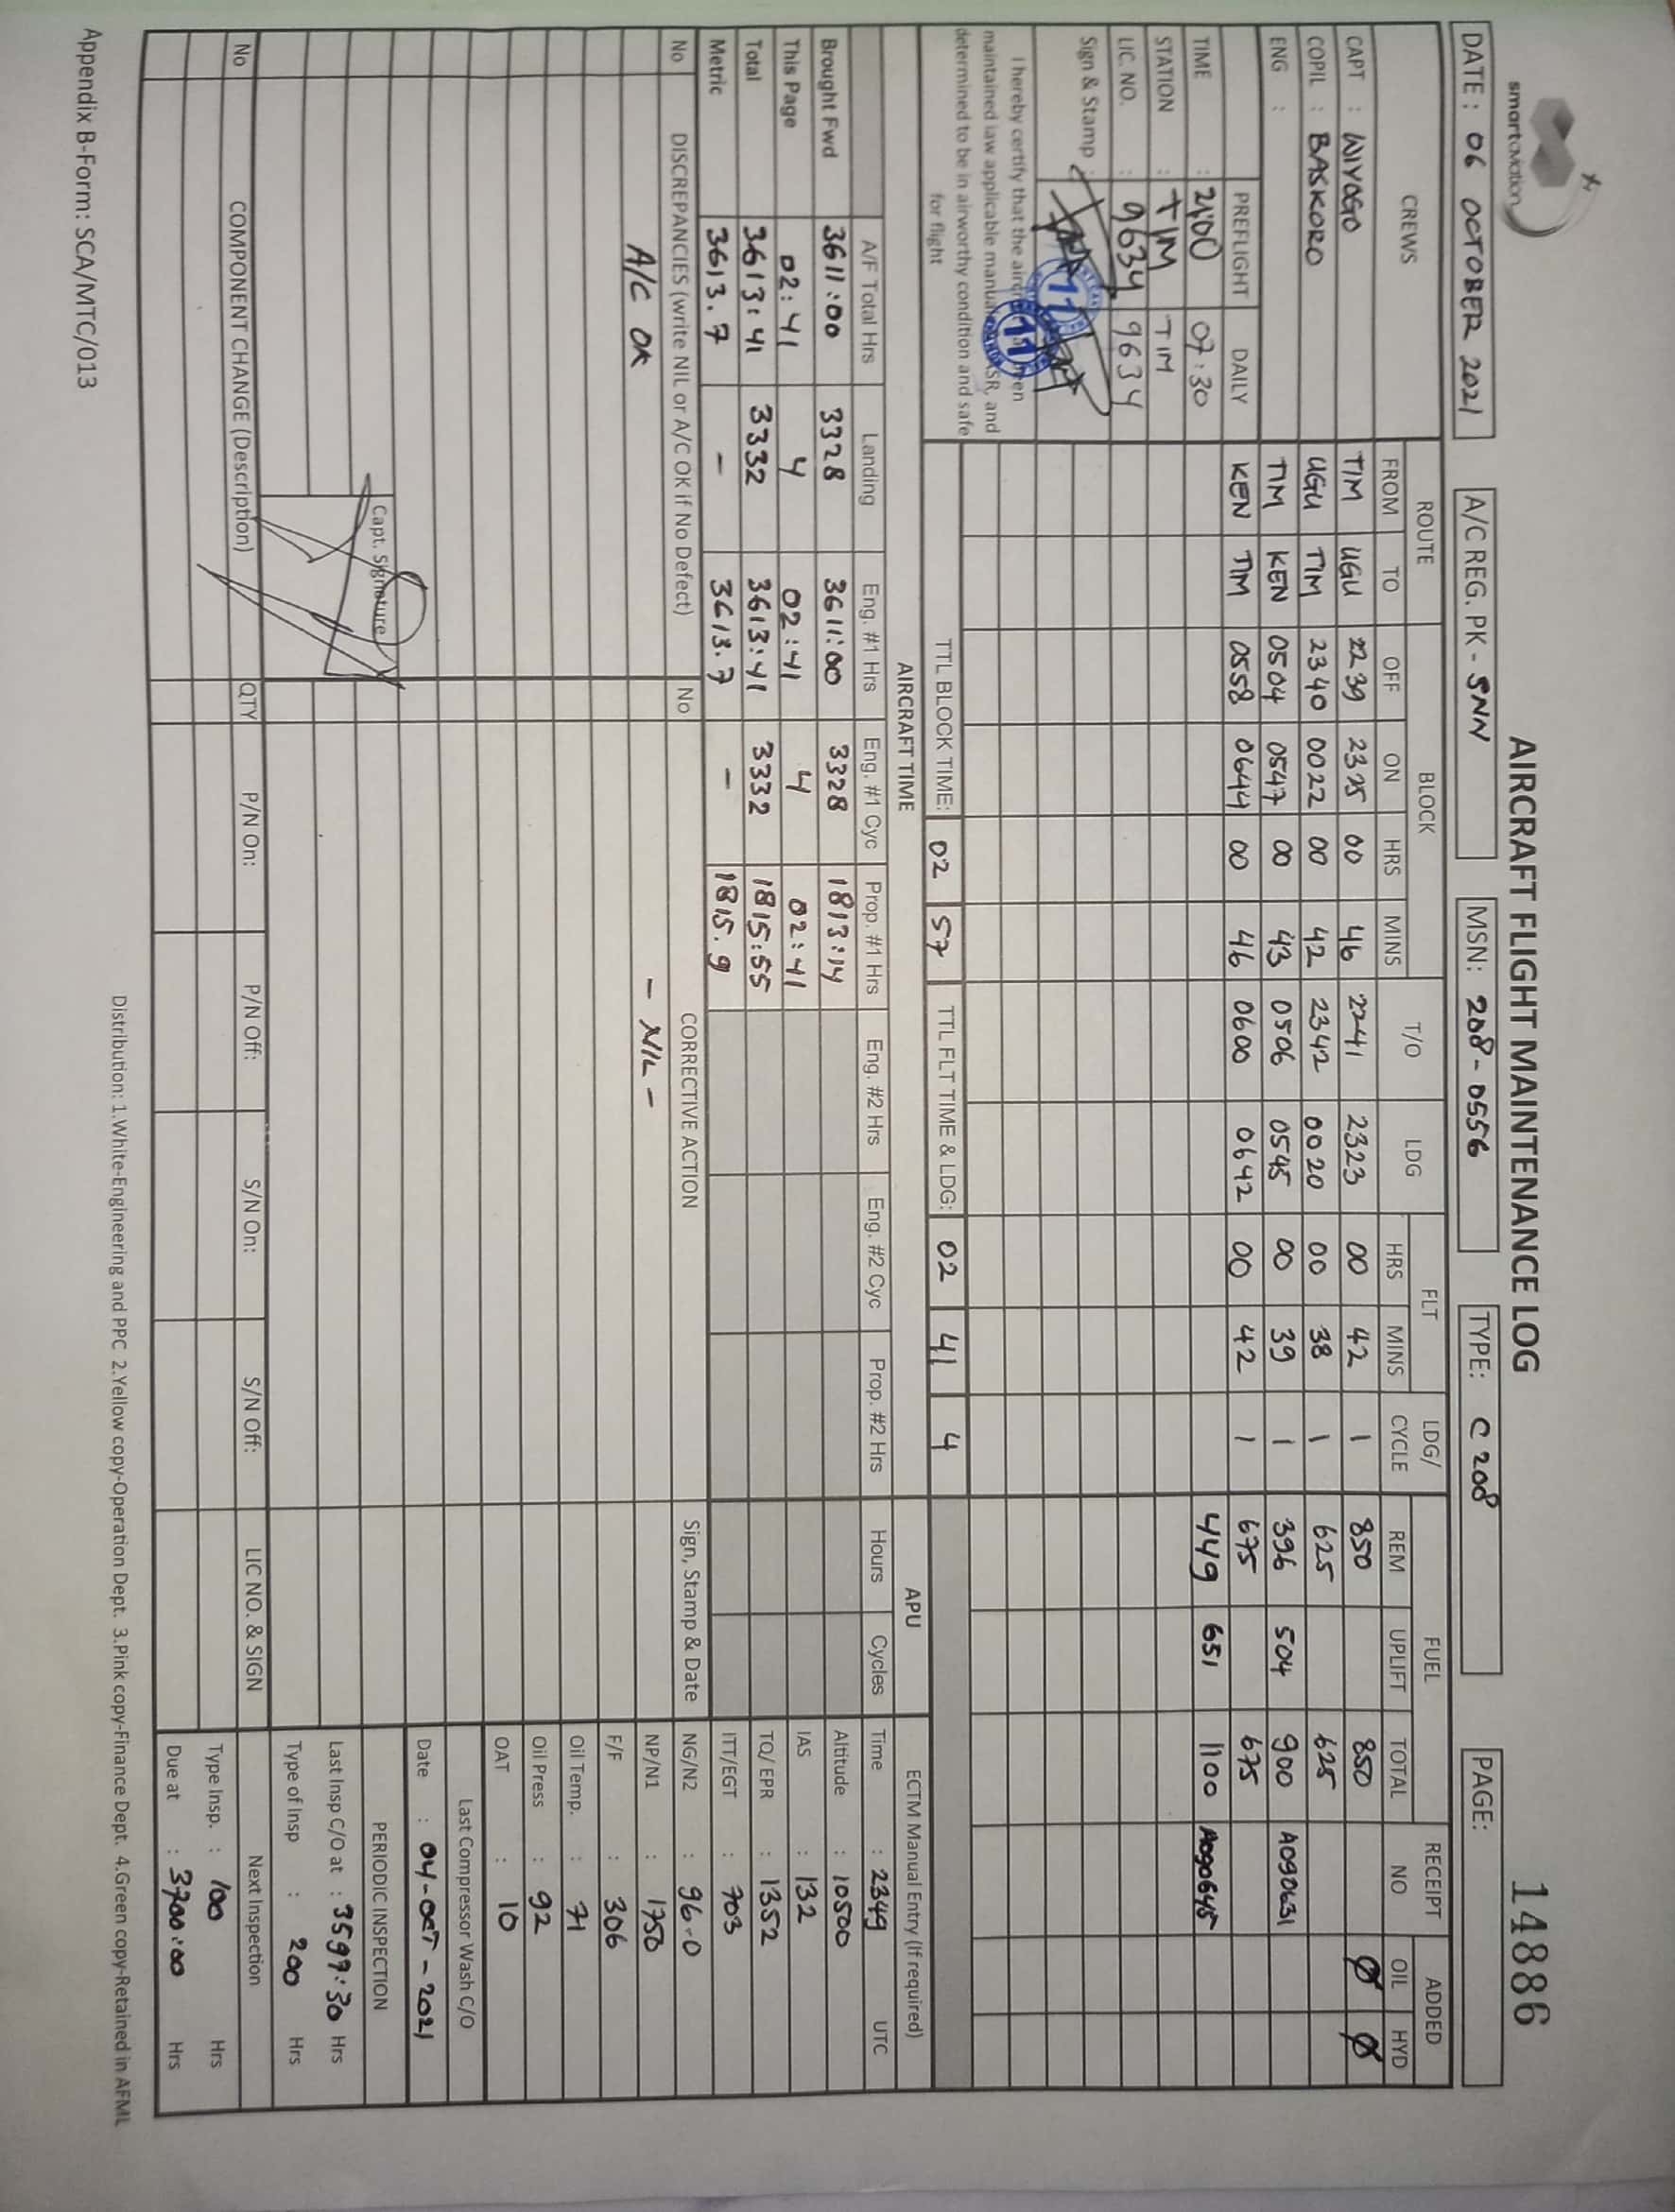 smartaviation
AIRCRAFT FLIGHT MAINTENANCE LOG
14886
DATE : 06 OCTOBER 2021 A/C REG. PK - SNN MSN: 208-0556 TYPE: C 208 PAGE:
CREWS ROUTE BLOCK T/O LDG FLT LDG/ CYCLE FUEL RECEIPT NO ADDED
FROM TO OFF ON HRS MINS HRS MINS REM UPLIFT TOTAL OIL HYD
CAPT : WIYOGO TIM UGU 2239 2325 00 46 2241 2323 00 42 1 850 850 Ø Ø
COPIL : BASKORO UGU TIM 2340 0022 00 42 2342 0020 00 38 1 625 625
ENG : TIM KEN 0504 0547 00 43 0506 0545 00 39 1 396 504 900 A090631
PREFLIGHT DAILY KEN TIM 0558 0644 00 46 0600 0642 00 42 1 675 675
TIME : 2100 07:30 449 651 1100 A090645
STATION : TIM TIM
LIC. NO. : 9634 9634
Sign & Stamp :
I hereby certify that the aircraft been
maintained law applicable manual SR, and
determined to be in airworthy condition and safe
for flight
TTL BLOCK TIME: 02 57 TTL FLT TIME & LDG: 02 41 4
AIRCRAFT TIME APU ECTM Manual Entry (If required)
A/F Total Hrs Landing Eng. #1 Hrs Eng. #1 Cyc Prop. #1 Hrs Eng. #2 Hrs Eng. #2 Cyc Prop. #2 Hrs Hours Cycles Time : 2349 UTC
Brought Fwd 3611:00 3328 3611:00 3328 1813:14 Altitude : 10500
This Page 02:41 4 02:41 4 02:41 IAS : 132
Total 3613:41 3332 3613:41 3332 1815:55 TQ/ EPR : 1352
Metric 3613.7 - 3613.7 - 1815.9 ITT/EGT : 703
No DISCREPANCIES (write NIL or A/C OK if No Defect) No CORRECTIVE ACTION Sign, Stamp & Date NG/N2 : 96.0
A/C OK - NIL - NP/N1 : 1750
F/F : 306
Oil Temp. : 71
Oil Press : 92
OAT : 10
Last Compressor Wash C/O
Date : 04-OCT-2021
Capt. Signature
PERIODIC INSPECTION
Last Insp C/O at : 3599:30 Hrs
Type of Insp : 200 Hrs
No COMPONENT CHANGE (Description) QTY P/N On: P/N Off: S/N On: S/N Off: LIC NO. & SIGN Next Inspection
Type Insp. : 100 Hrs
Due at : 3700:00 Hrs
Distribution: 1.White-Engineering and PPC 2.Yellow copy-Operation Dept. 3.Pink copy-Finance Dept. 4.Green copy-Retained in AFML
Appendix B-Form: SCA/MTC/013